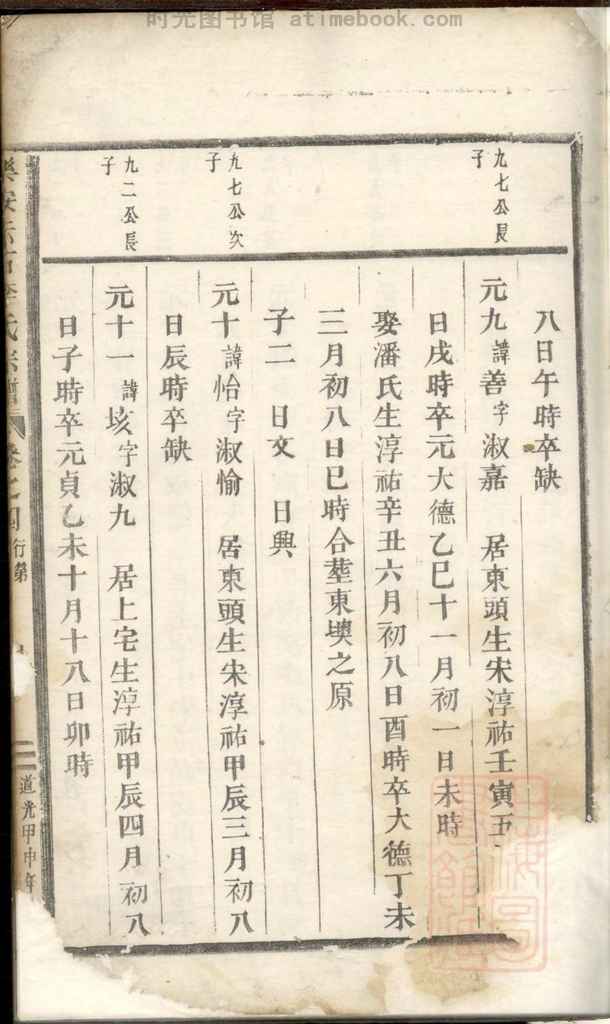 时光图书馆 atimebook.com
九七公長子
九七公次子
九二公長子
八日午時卒缺
元九諱善字淑嘉 居東頭生宋淳祐壬寅五
日戌時卒元大德乙巳十一月初一日未時
娶潘氏生淳祐辛丑六月初八日酉時卒大德丁未
三月初八日巳時合塟東墺之原
子二 日文 日興
元十諱怡字淑愉 居東頭生宋淳祐甲辰三月初八
日辰時卒缺
元十一諱垓字淑九 居上宅生淳祐甲辰四月初八
日子時卒元貞乙未十月十八日卯時
氏宗譜 卷之四 行第
道光甲申年